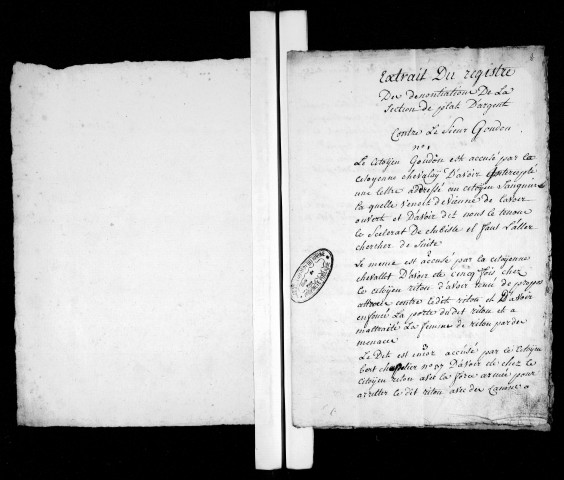 Extrait Du registre
Des denontiations De La
Section de plak D'argent
Contre Le Sieur Goudon
n° 1
Le Citoyen Goudon est accusé par La
Citoyenne chevalay D'avoir intercepté
une lettre addressé au citoyen Sanguin
la quelle venoit de vienne de lavoir
ouvert et D'avoir dit nous le tenons
le Scelerat De clubiste il faut L'aller
chercher de Suite
Le meme est accusé par la citoyenne
chevallet D'avoir de cinq fois chez
Le citoyen riton d'avoir tenu de propos
atroces contre ledit riton et D'avoir
enfoncé La porte du dit riton et a
maltraité La femme de riton par des
menaces
Le Dit est encor accusé par le Citoyen
bert chapelier n° 37 D'avoir de chez le
Citoyen riton avec la force armée pour
arretter le dit riton avec des Canons a